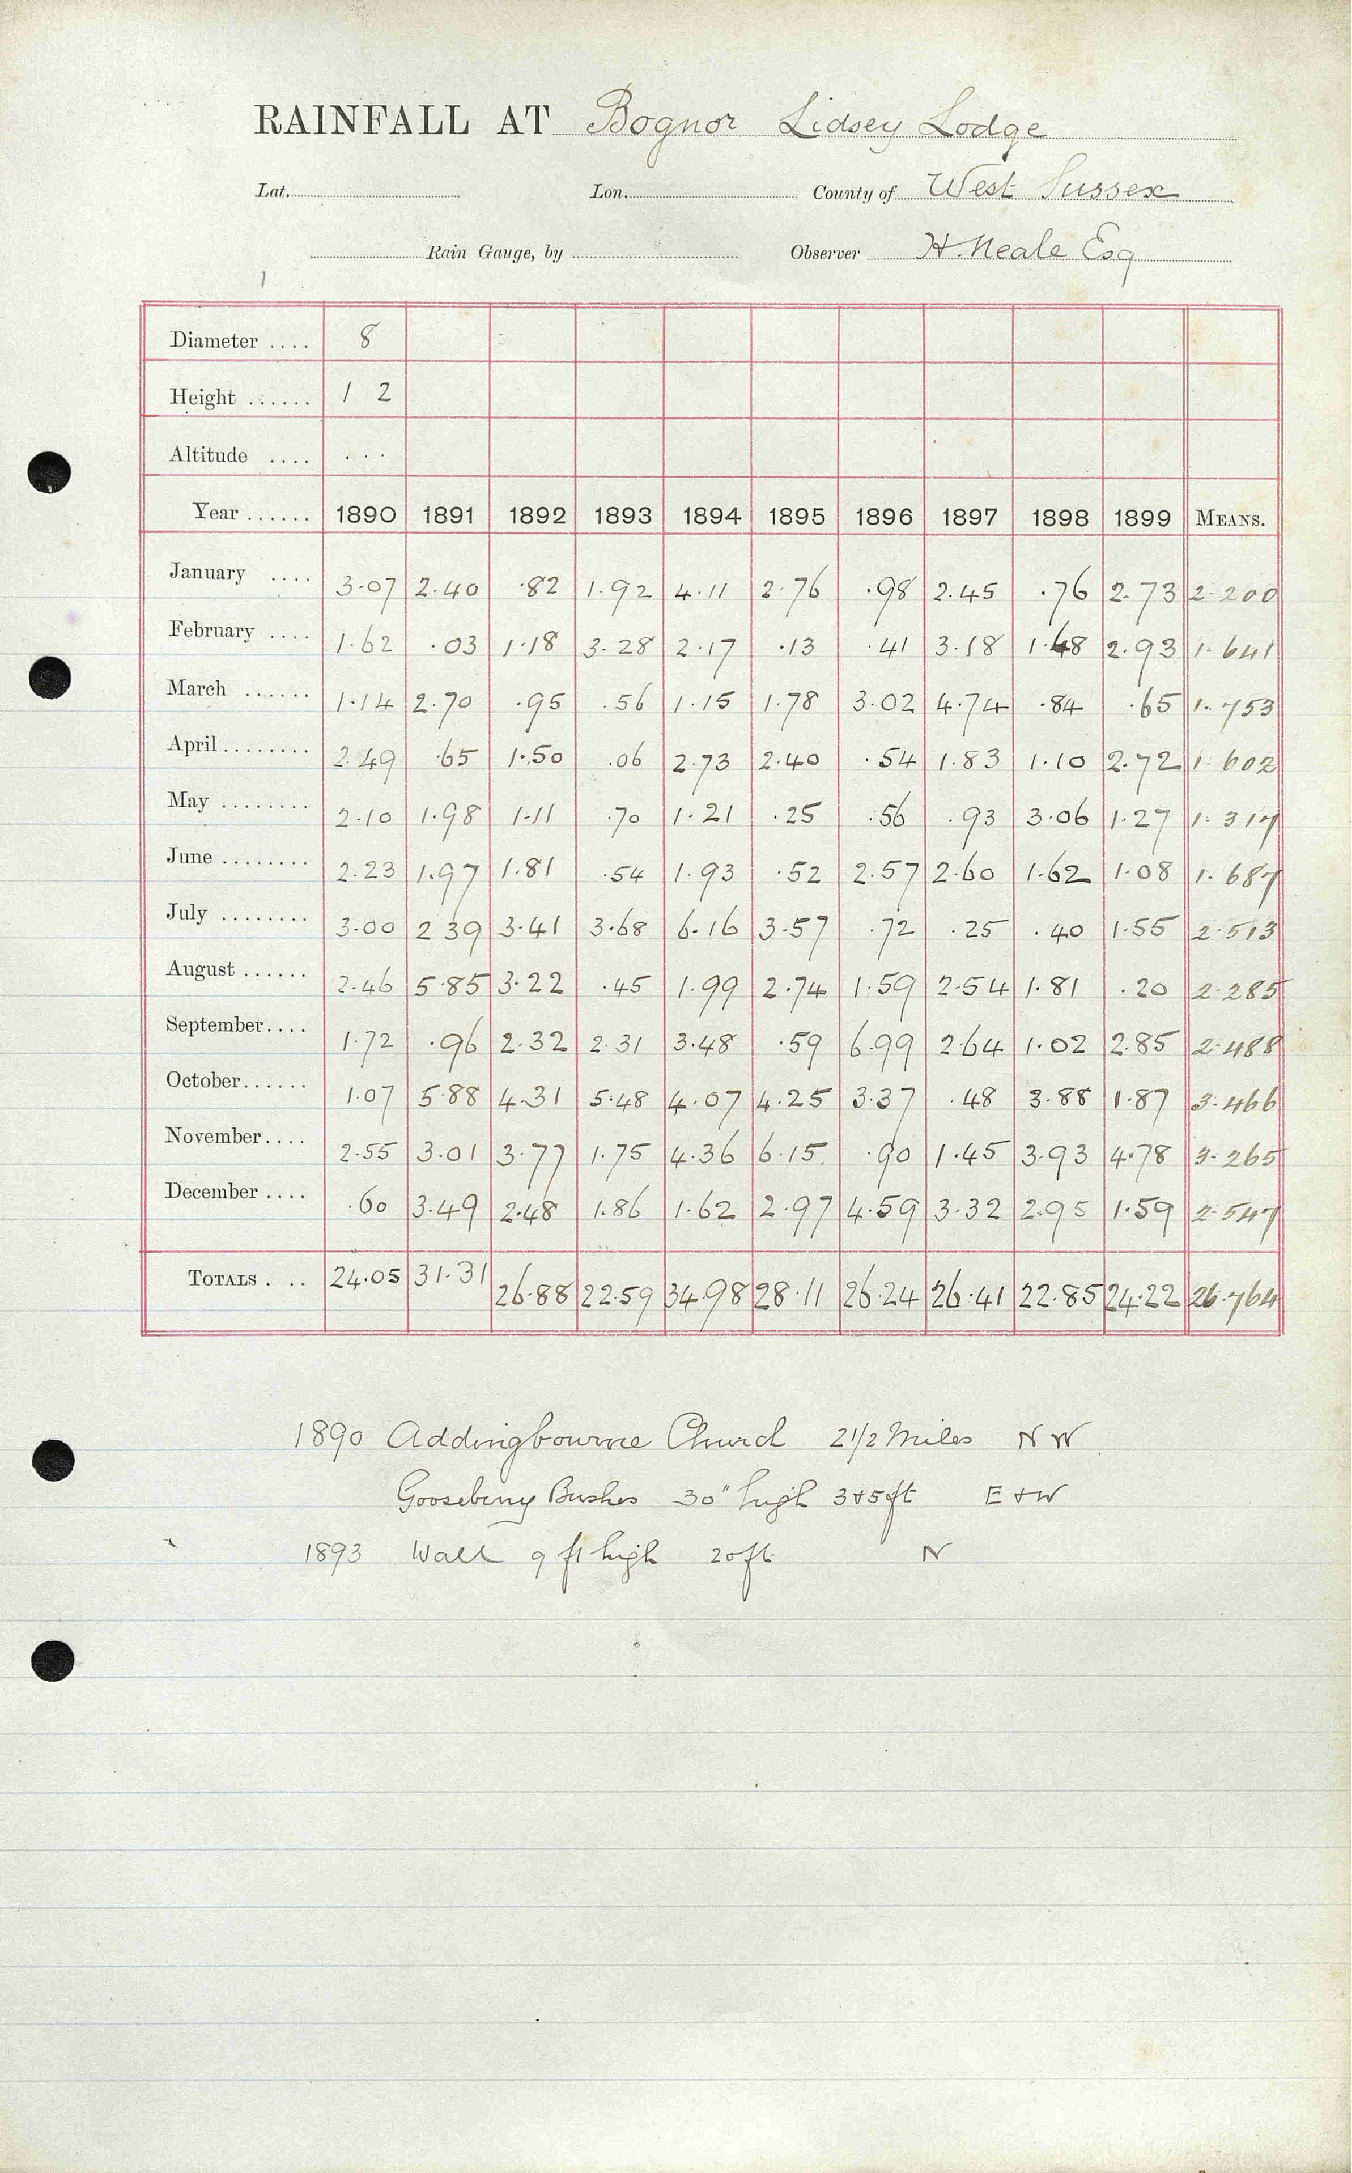 RAINFALL AT Bognor Lidsey Lodge
Lat. Lon. County of West Sussex
Rain Gauge, by Observer H. Neale Esq
Diameter .... 8
Height ...... 1 2
Altitude .... ...
Year ...... 1890 1891 1892 1893 1894 1895 1896 1897 1898 1899 MEANS.
January .... 3.07 2.40 .82 1.92 4.11 2.76 .98 2.45 .76 2.73 2.200
February .... 1.62 .03 1.18 3.28 2.17 .13 .41 3.18 1.48 2.93 1.641
March ...... 1.14 2.70 .95 .56 1.15 1.78 3.02 4.74 .84 .65 1.753
April ........ 2.49 .65 1.50 .06 2.73 2.40 .54 1.83 1.10 2.72 1.602
May ........ 2.10 1.98 1.11 .70 1.21 .25 .56 .93 3.06 1.27 1.317
June ........ 2.23 1.97 1.81 .54 1.93 .52 2.57 2.60 1.62 1.08 1.687
July ........ 3.00 2 39 3.41 3.68 6.16 3.57 .72 .25 .40 1.55 2.513
August ...... 2.46 5.85 3.22 .45 1.99 2.74 1.59 2.54 1.81 .20 2.285
September.... 1.72 .96 2.32 2.31 3.48 .59 6.99 2.64 1.02 2.85 2.488
October...... 1.07 5.88 4.31 5.48 4.07 4.25 3.37 .48 3.88 1.87 3.466
November.... 2.55 3.01 3.77 1.75 4.36 6.15 .90 1.45 3.93 4.78 3.265
December .... .60 3.49 2.48 1.86 1.62 2.97 4.59 3.32 2.95 1.59 2.547
TOTALS . .. 24.05 31.31 26.88 22.59 34.98 28.11 26.24 26.41 22.85 24.22 26.764
1890 Addingbourne Church 2 1/2 Miles N W
Gooseberry Bushes 30" high 3+5ft E + W
1893 Wall 9 ft high 20ft N